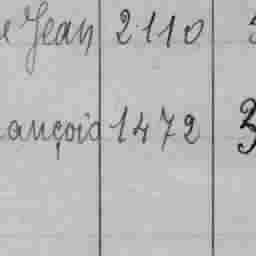 Jean 2110
ançois 1472 3